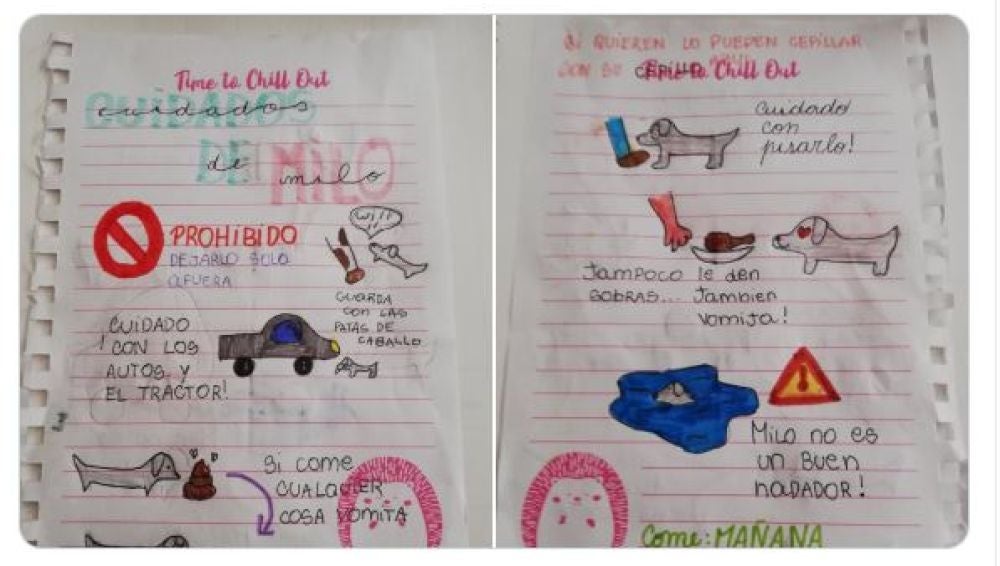 Time to Chill Out
CUIDADOS
cuidados
DE MILO
de milo
PROHIBIDO
DEJARLO SOLO
AFUERA
GUARDA
CON LAS
PATAS DE
CABALLO
CUIDADO
! CON LOS
AUTOS Y
EL TRACTOR!
Si come
CUALQUIER
COSA VOMITA
Si QUIEREN LO PUEDEN CEPILLAR
CON SU CEPILLO
Time to Chill Out
Cuidado
con
pisarlo!
Tampoco le den
SOBRAS... Tambien
vomita!
Milo no es
un buen
nadador!
Come: MAÑANA